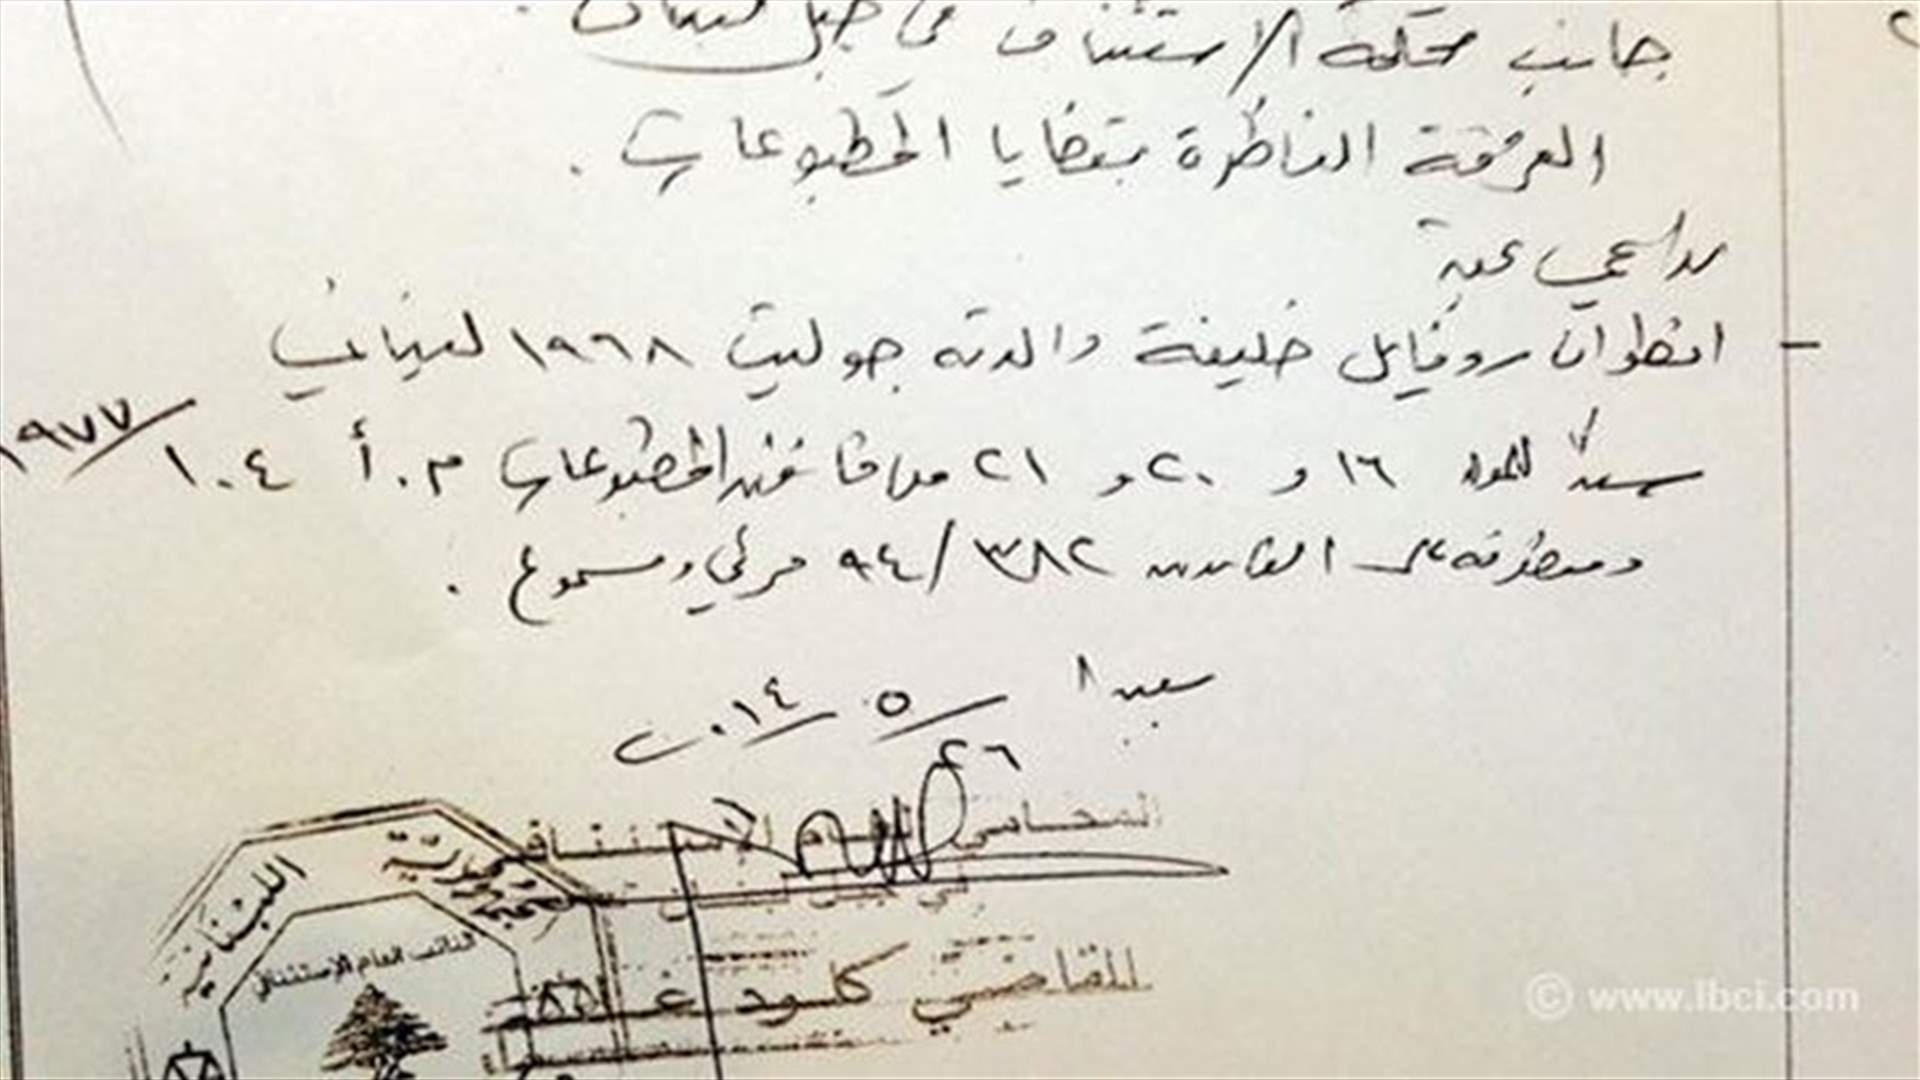 جانب محكمة الاستئناف في جبل لبنان .
الغرفة الناظرة بقضايا المطبوعات .
ندعي عليه
- انطوان روفايل خليفة والدته جوليت ١٩٦٨ لبناني
سنداً للمواد ١٦ و ٢٠ و ٢١ من المطبوعات م . أ ١٠٤ / ١٩٧٧
ومعطوفة على القانون ٣٨٢ / ٩٤ مرئي ومسموع .
بعبدا
٢٦ / ٥ / ٢٠١٤
المحامي العام الاستئنافي
في جبل لبنان
القاضي كلود
الجمهورية اللبنانية
النائب العام الاستئنافي
© www.lbci.com